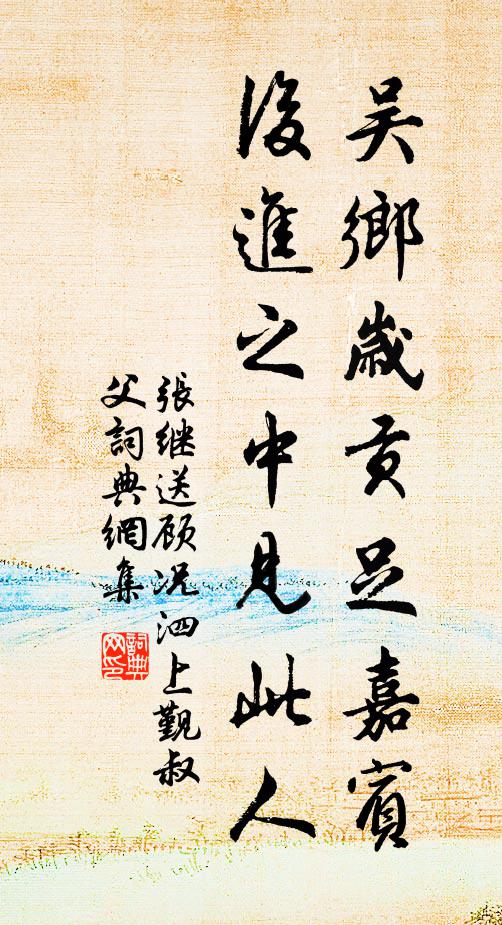 吴鄉歲贡足嘉賓
後進之中見此人
張继送顾况泗上觐叔
父詞典網集
詞典
网印